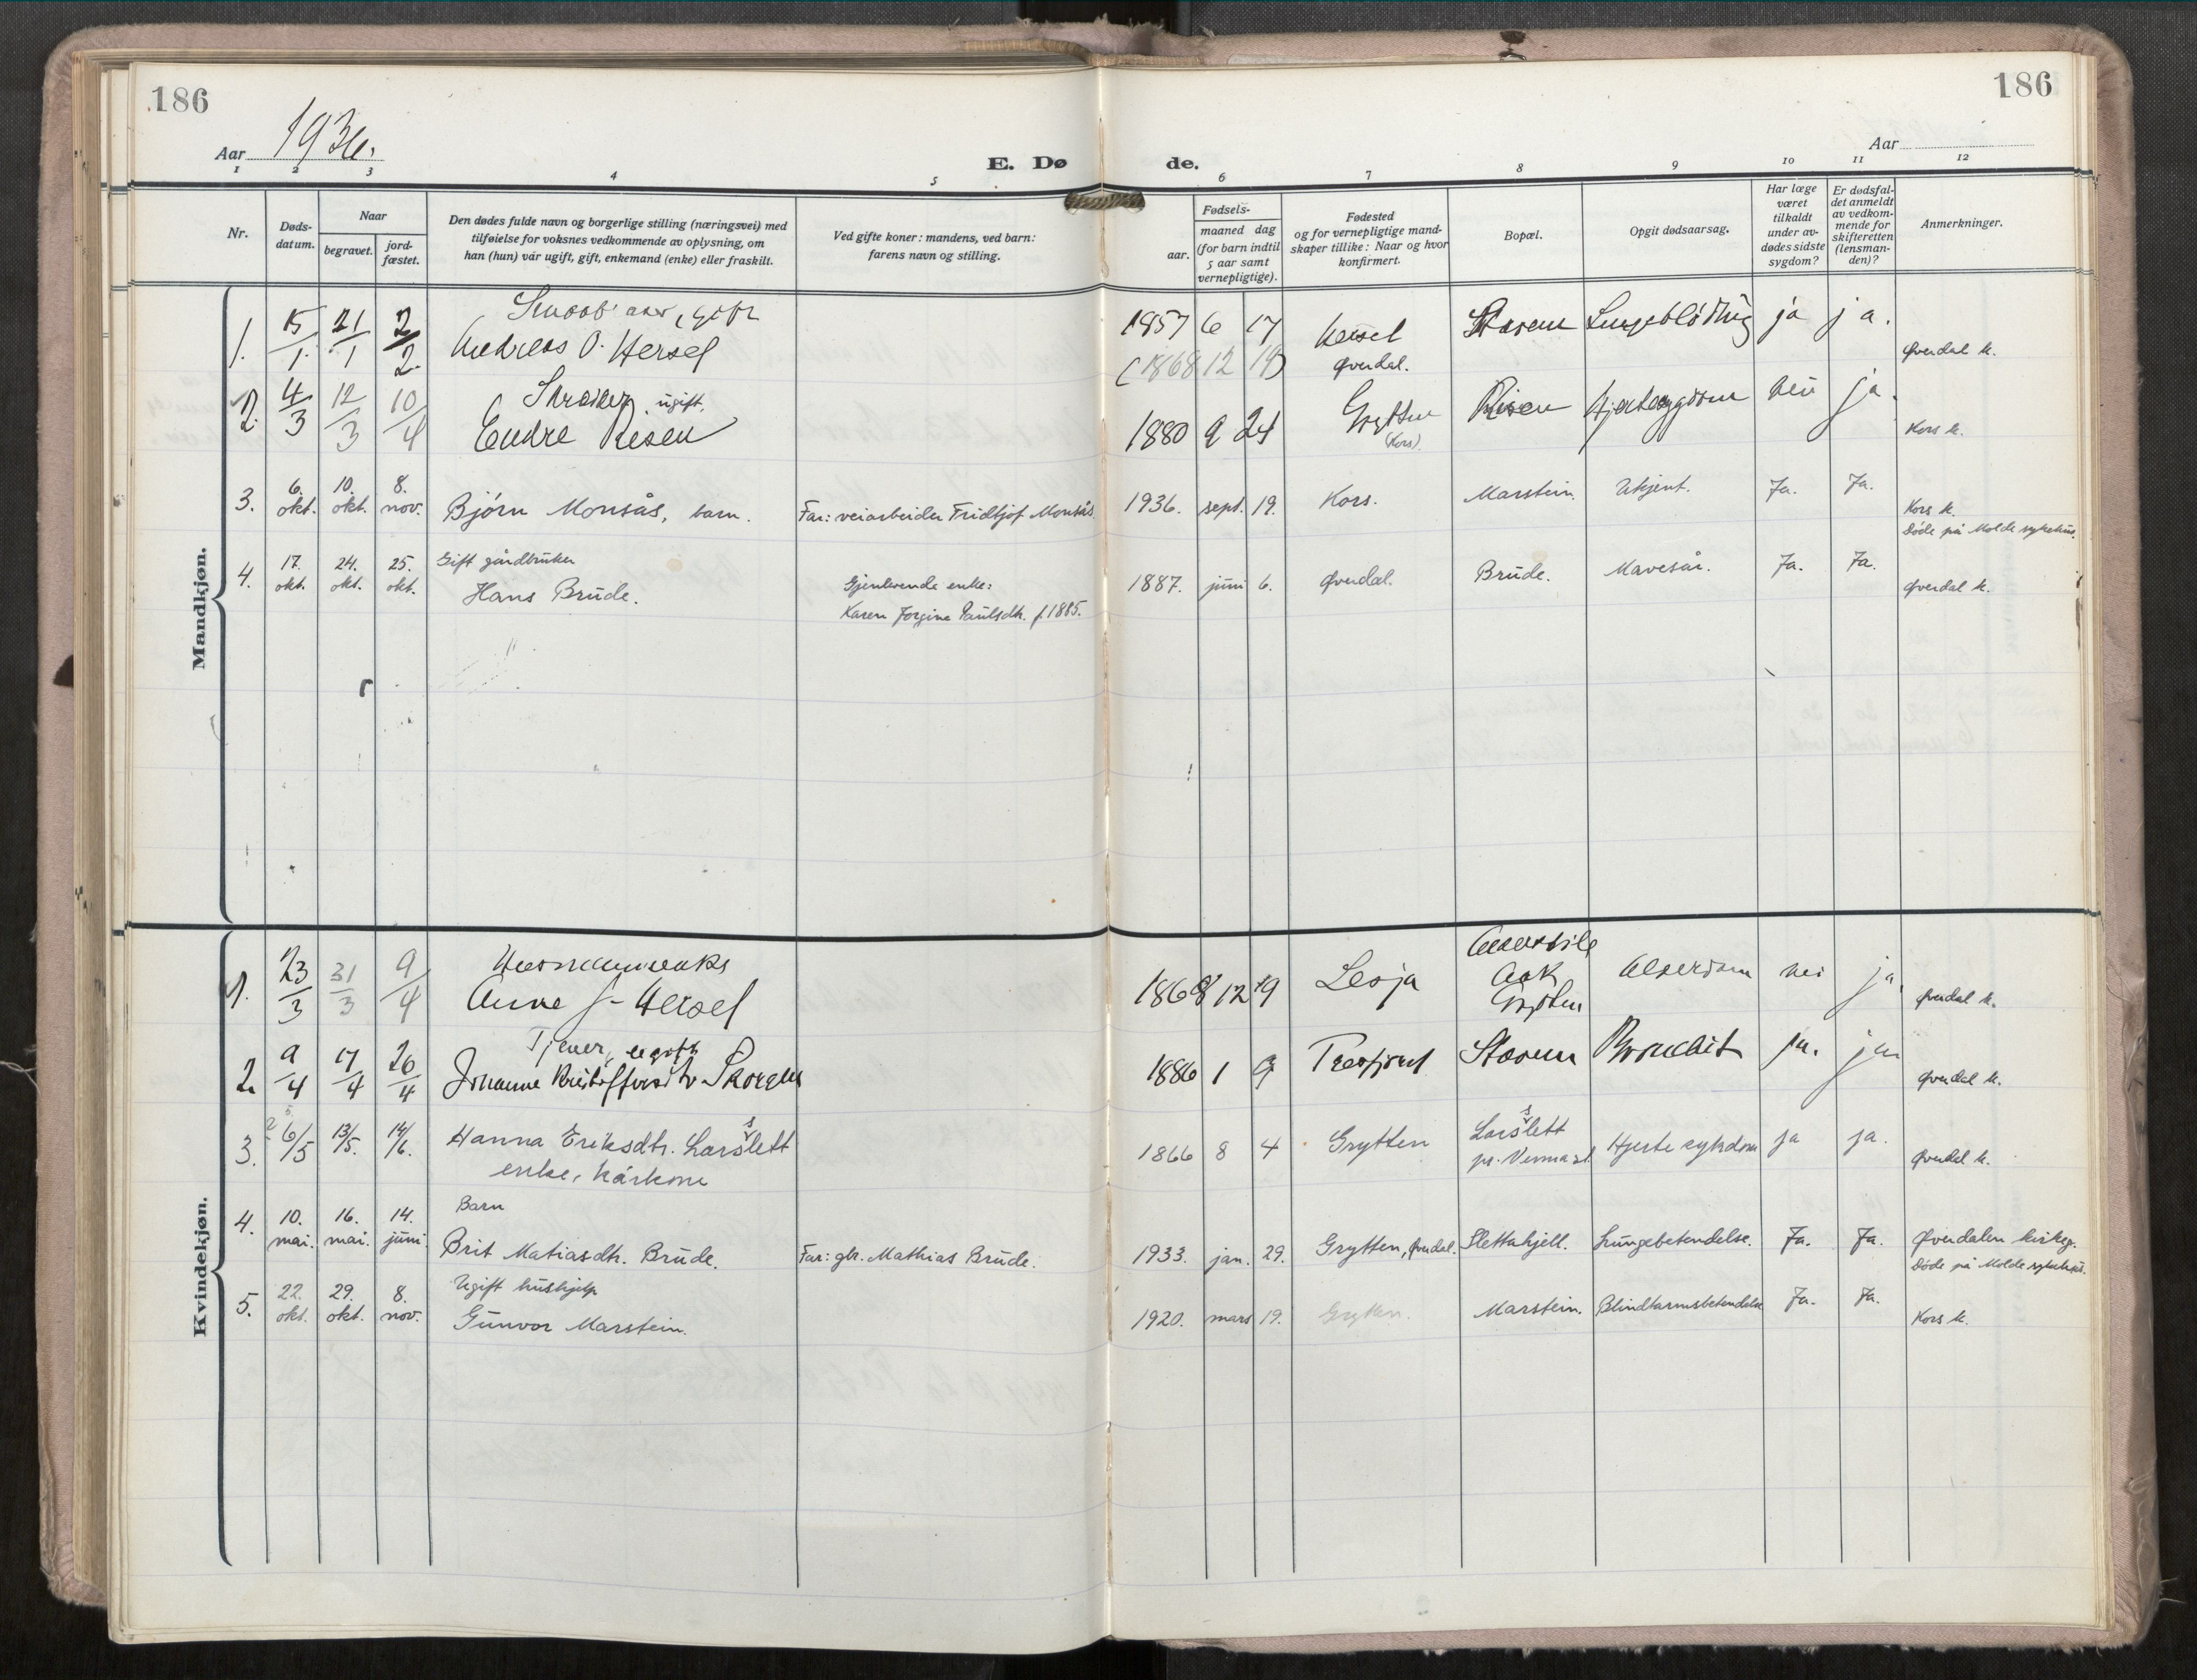 186
186
Aar 1936.
E. Døde.
Aar
1 2 3 4 5 6 7 8 9 10 11 12
Nr.
Døds-
datum.
Naar
begravet.
jord-
fæstet.
Den dødes fulde navn og borgerlige stilling (næringsvei) med
tilføielse for voksnes vedkommende av oplysning, om
han (hun) var ugift, gift, enkemand (enke) eller fraskilt.
Ved gifte koner: mandens, ved barn:
farens navn og stilling.
Fødsels-
aar.
maaned dag
(for barn indtil
5 aar samt
vernepligtige).
Fødested
og for vernepligtige mand-
skaper tillike: Naar og hvor
konfirmert.
Bopæl.
Opgit dødsaarsag.
Har læge
været
tilkaldt
under av-
dødes sidste
sygdom?
Er dødsfal-
det anmeldt
av vedkom-
mende for
skifteretten
(lensman-
den)?
Anmerkninger.
Mandkjøn.
1. 15/1 21/1 2/2 gift
Andreas O. Hersel
1857 6 17 Hersel Lungeblødning ja ja.
(1868 12 19) Øverdal. Øverdal k.
2. 4/3 12/3 10/4 ugift.
Endre Risen
1880 9 24 Grytten Risen Hjertesygdom nei ja.
(Kors). Kors k.
3. 6. okt. 10. okt. 8. nov. Bjørn Monsås, barn. Far: veiarbeider Fridtjof Monsås. 1936. sept. 19. Kors. Marstein. Ukjent. Ja. Ja. Kors k.
Døde på Molde sykehus.
4. 17. okt. 24. okt. 25. okt. Gift gårdbruker
Hans Brude.
Gjenlevende enke:
Karen Jorgine Paulsdtr. f. 1885.
1887. juni 6. Øverdal. Brude. Mavesår. Ja. Ja. Øverdal k.
Kvindekjøn.
1. 23/3 31/3 9/4
Anne J- Hersel
1868 12 19 Lesja Aak
Grytten
Alderdom nei ja. Øverdal k.
2. 9/4 17/4 26/4 Tjener, ugift
Johanne Kristoffersdtr Skorgen
1886 1 9 Tresfjord Bronchit ja. ja Øverdal k.
3. 6/5 13/5. 14/6. Hanna Eriksdtr. Larsslett
enke, kårkone
1866 8 4 Grytten Larsslett
pr. Verma st.
Hjertesykdom ja ja. Øverdal k.
4. 10. mai. 16. mai. 14. juni Barn
Brit Matiasdtr. Brude. Far: gbr. Mathias Brude. 1933. jan. 29. Grytten, Øverdal. Slettahjell. Lungebetendelse. Ja. Ja. Øverdalen kirkeg.
Døde på Molde sykehus.
5. 22. okt. 29. okt. 8. nov. Ugift hushjelp
Gunvor Marstein. 1920. mars 19. Grytten. Marstein. Blindtarmsbetendelse Ja. Ja. Kors k.